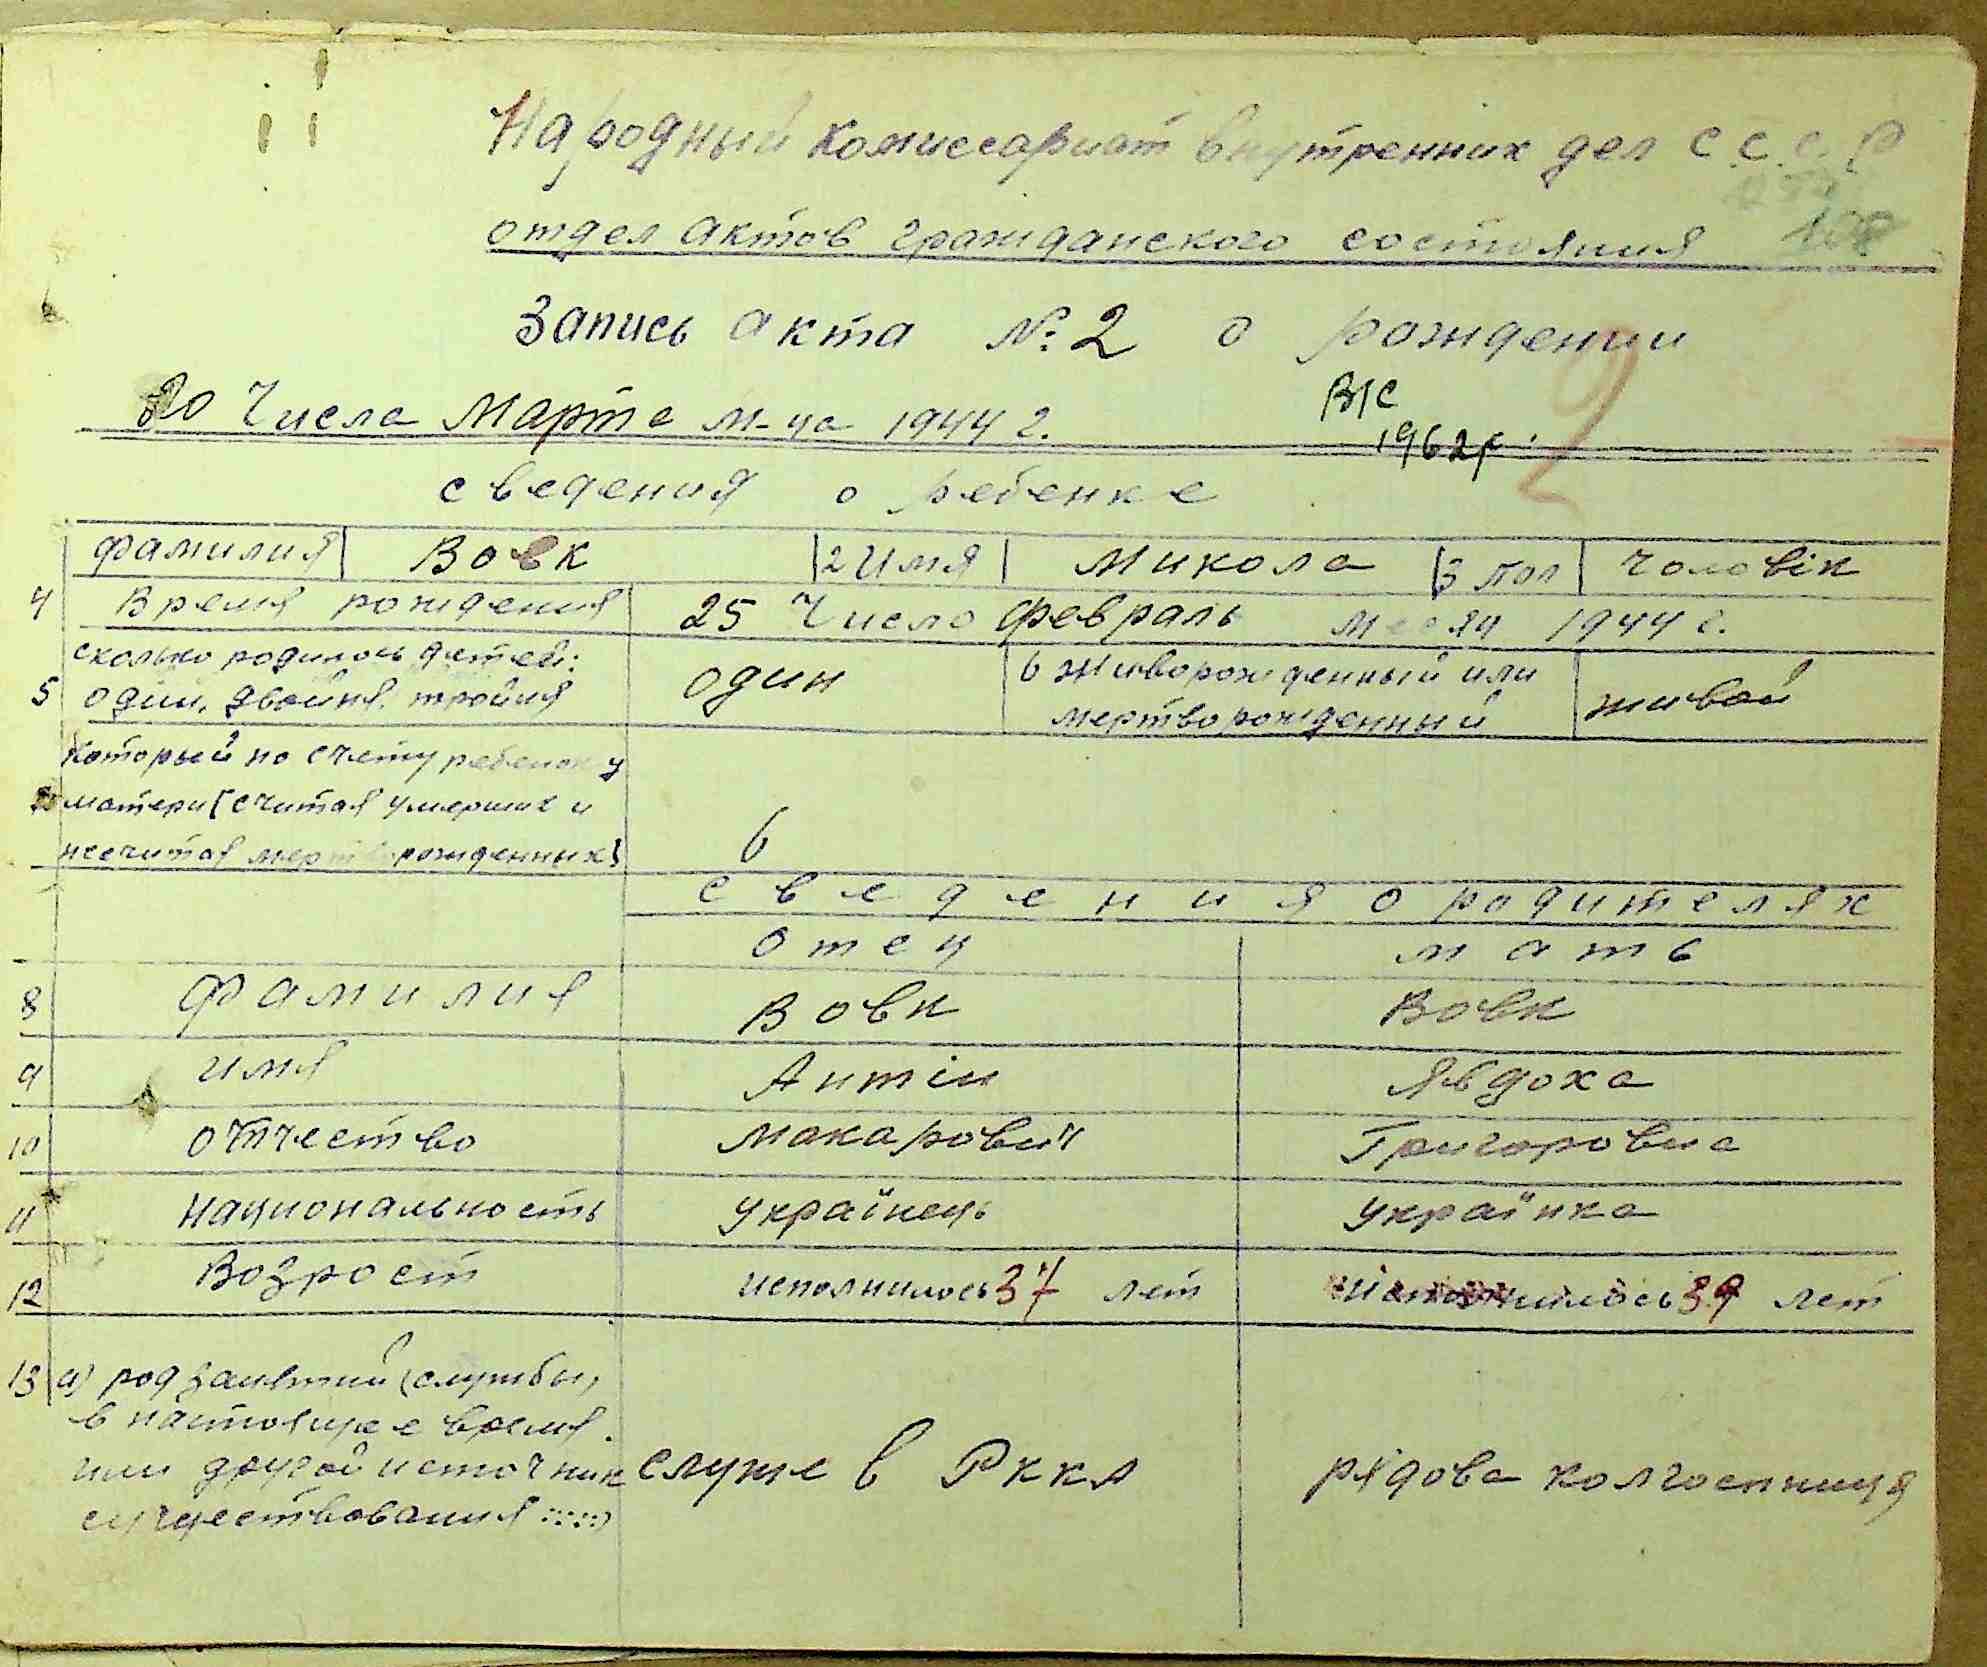 Народный комиссариат внутренних дел С.С.С.Р
отдел актов гражданского состояния
Запись акта №: 2 о рождении
2
20 числа Марта м-ца 1944 г.
В/С
1962р.
сведения о ребенке
фамилия Вовк 2 имя Микола 3 пол чоловік
4 Время рождения 25 число февраль месяц 1944 г.
5 сколько родилось детей: один, двойня, тройня один 6 живорожденный или мертворожденный живой
который по счету ребенок у
матери [считая умерших и
несчитая мертворожденных] 6
сведения о родителях
отец мать
8 фамилия Вовк Вовк
9 имя Антін Явдоха
10 отчество Макарович Григоровна
11 национальность українець українка
12 Возрост исполнилось 37 лет исполнилось 39 лет
13 а) род занятий (службы,
в настоящее время.
или другой источник служе в РККА рядова колгоспниця
существования